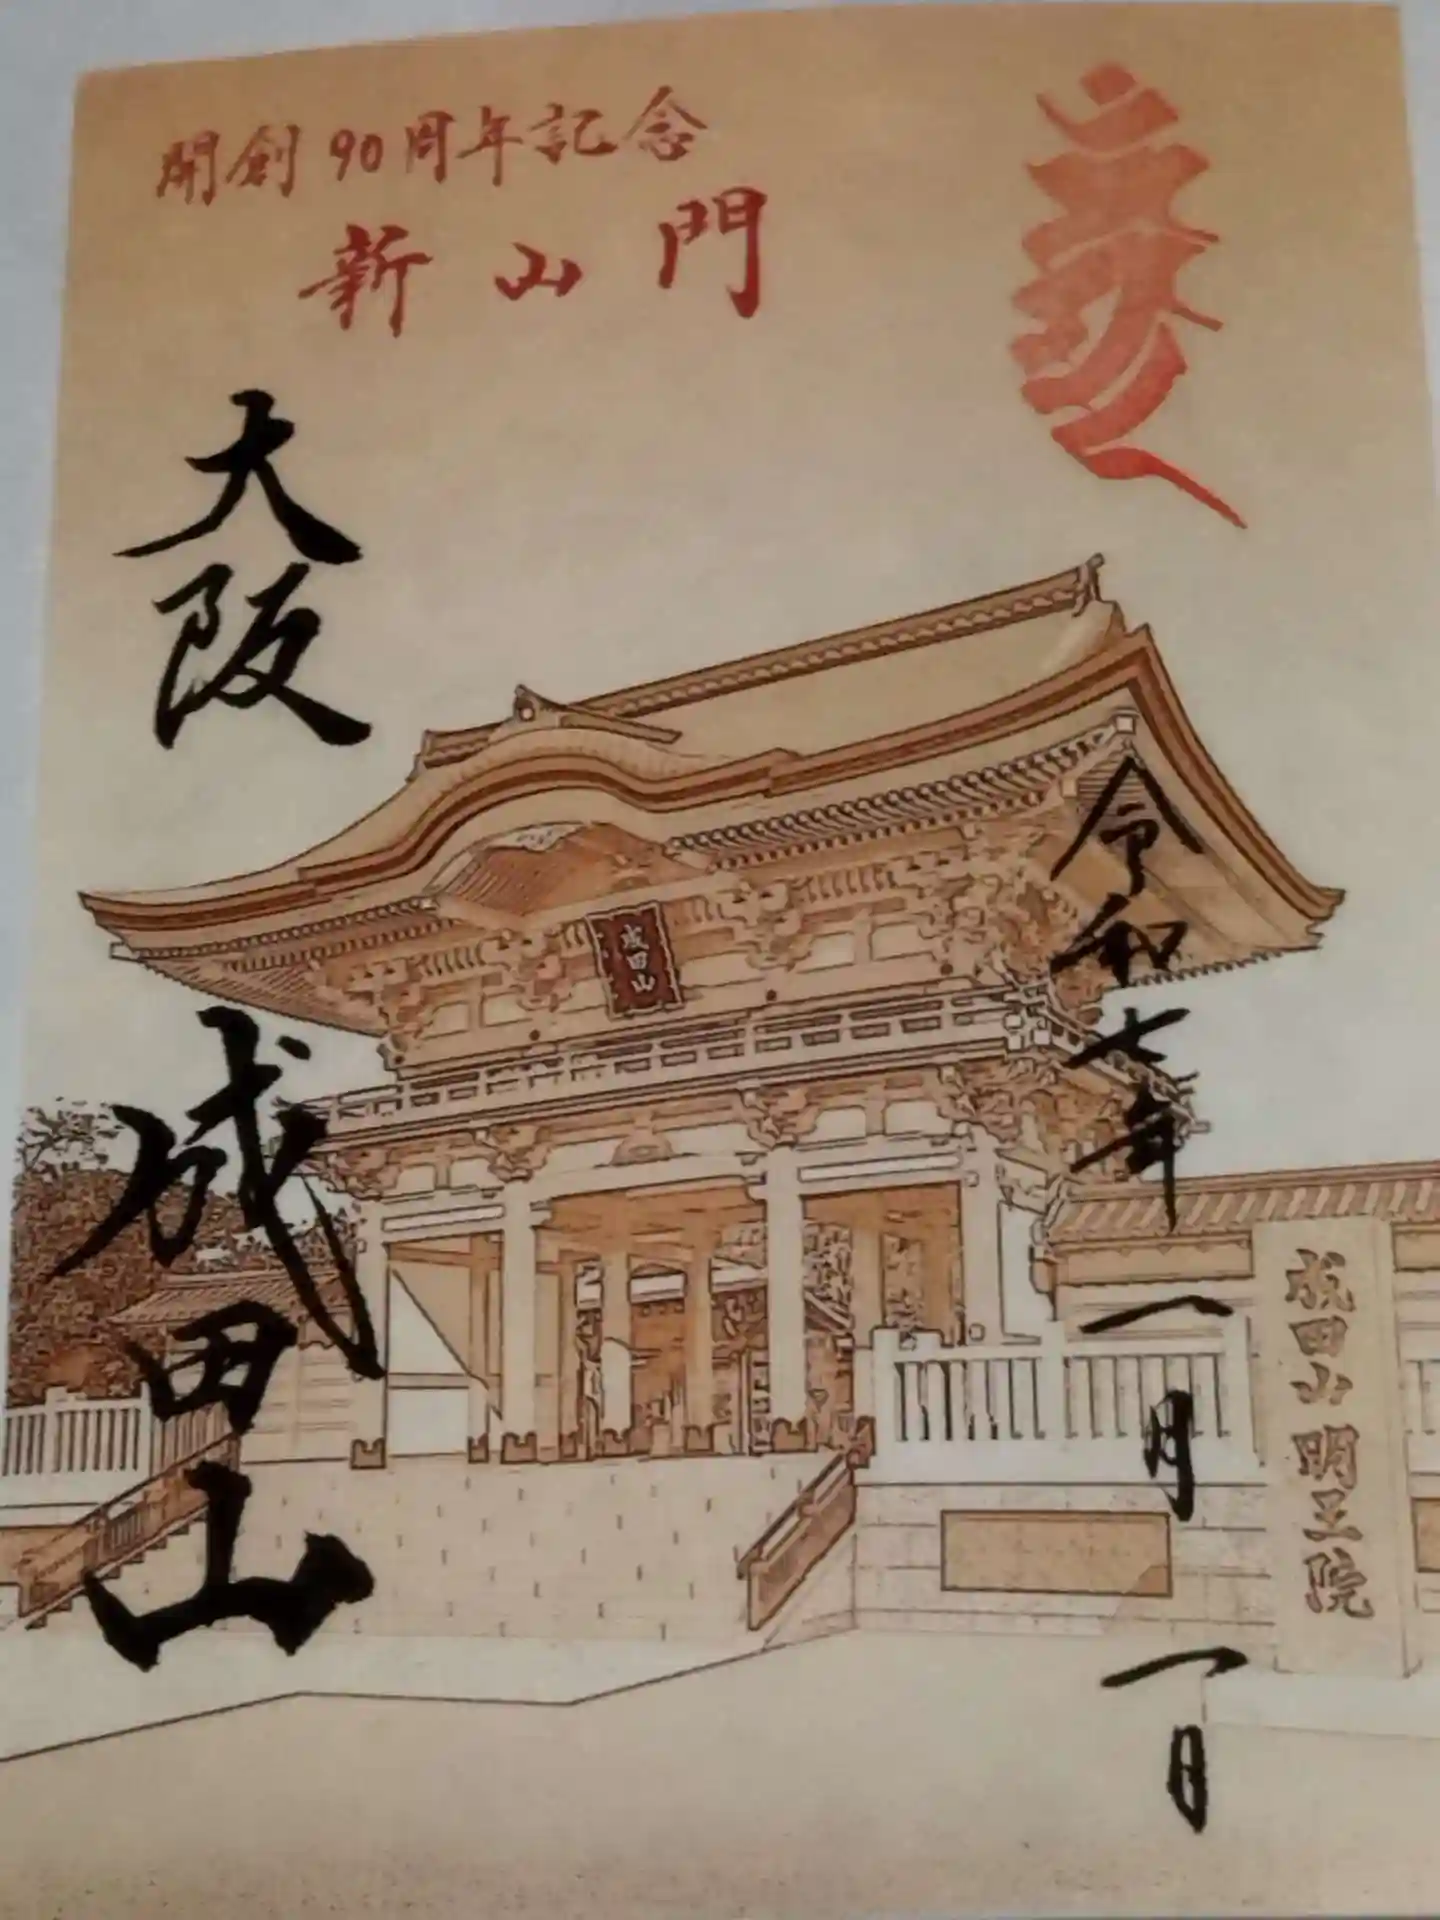 開創90周年記念
新山門
令和七年一月一日
大阪
成田山
成田山
成田山明王院